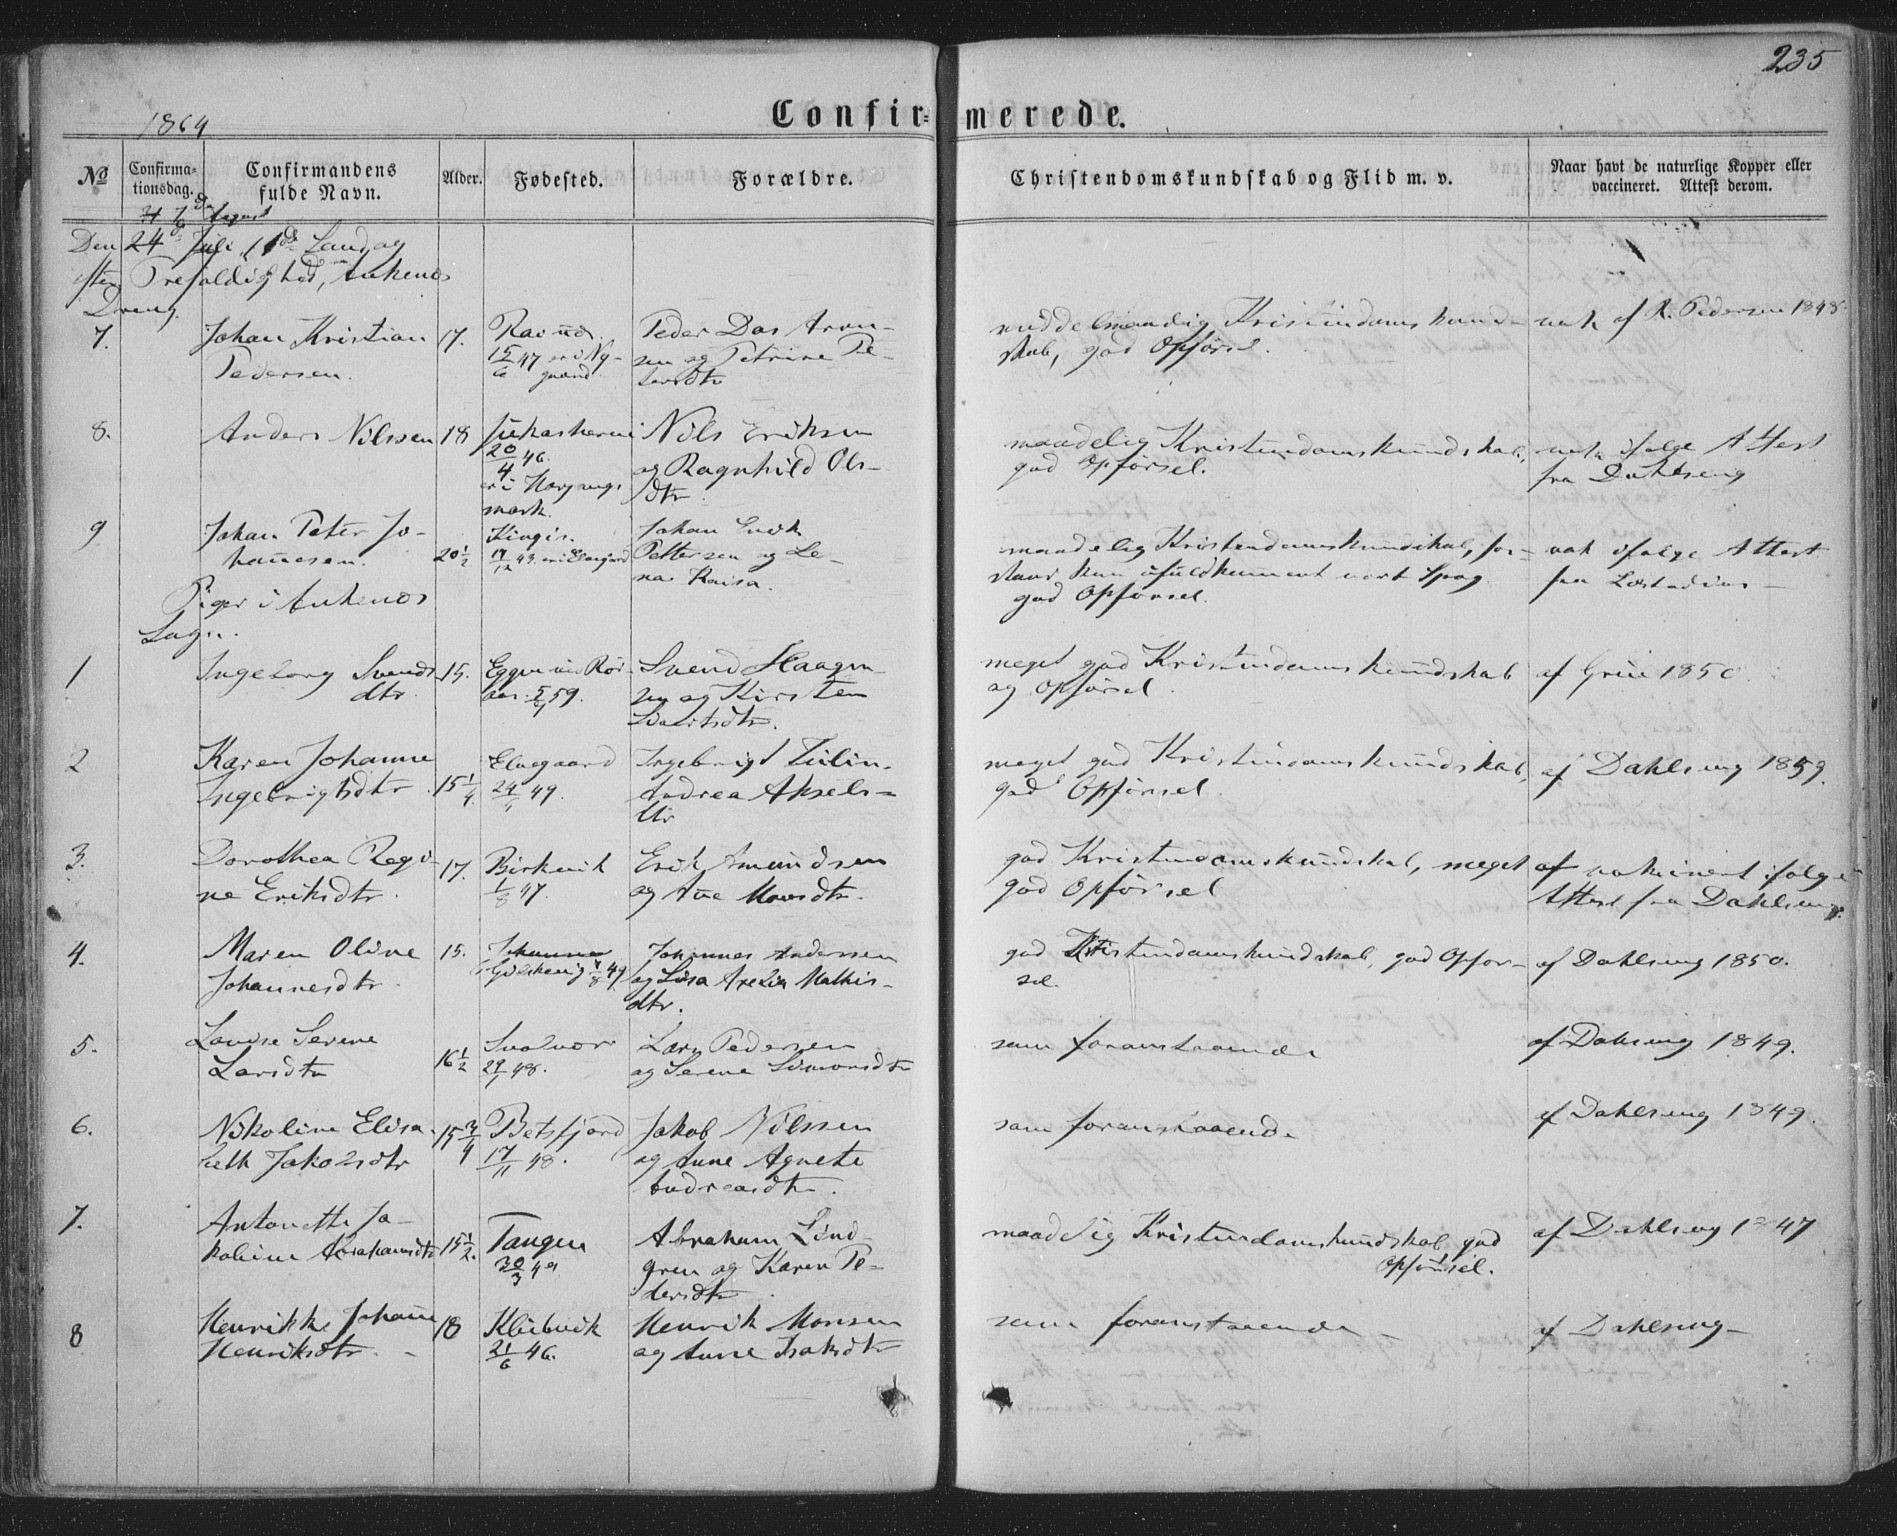 235
1864
Confir=merede.
No
Confirma-
tionsdag.
Confirmandens
fulde Navn.
Alder.
Fødested.
Forældre.
Christendomskundskab og Flid m. v.
Naar havt de naturlige Kopper eller
vaccineret. Attest derom.
August
Den 24 Juli, 11de Søndag
efter Trefoldighed, Ankenes
Dreng
7. Johan Kristian 17.
Pedersen.
15/6 47
Peder Das Aron-
sen og Petrine Pe-
dersdtr
middelmaadig Kristendomskund-
skab, god Opførsel.
vak af R. Pedersen 1848
8. Anders Nilssen 18
Jukaskærvi
20/4 46.
er i Norge
mark.
Nils Eriksen
og Ragnhild Ols-
dtr.
maadelig Kristendomskundskab,
god Opførsel.
vak ifølge Attest
fra Dahlseng
9 Johan Peter Jo-
hannesen. 20 1/2
Kingis.
Johan Erik
Pettersen og Le-
na Kaisa.
maadelig Kristendomskundskab, for-
staar kun ufuldkomment vort Sprog
god Opførsel.
vak ifølge Attest
fra Læstadius
Piger i Ankenes
Sogn.
1 Ingeborg Svends- 15.
dtr.
Svend Haagen-
sen og Kirsten
meget god Kristendomskundskab
og Opførsel.
af Grue 1850
2 Karen Johanne
Ingebrigtsdtr. 15 1/4
Elvegaard
24/4 49.
Ingebrigt
Andrea Aksels-
dtr
meget god Kristendomskundskab,
god Opførsel.
af Dahlseng 1859.
3. Dorothea Regi-
ne Eriksdtr. 17.
Birkvik
1/8 47.
Erik Amundsen
og Ane Monsdtr.
god Kristendomskundskab, meget
god Opførsel
af vakcineret ifølge
Attest fra Dahlseng.
4. Maren Oline 15.
Johannesdtr.
Johannes Andersen
og Lisa Mathis-
dtr.
god Kristendomskundskab, god Opfør-
sel.
af Dahlseng 1850.
5. Lovise Serene
Larsdtr 16 1/2
29/1 48.
Lars Pedersen
og Serene Simonsdtr
som foranstaaende
af Dahlseng 1849.
6. Nikoline Elisa- 15 3/4
beth Jakobsdtr
Betsfjord
17/11 48.
Jakob Nilssen
og Anne Agnete
Andreasdtr.
som foranstaaende
af Dahlseng 1849.
7. Antonette Ja-
kobine Abrahamsdtr 15 1/2.
Tangen
30/3 49
Abraham Lind-
gren og Karen Pe-
dersdtr.
maadelig Kristendomskundskab, god
Opførsel.
af Dahlseng 1847
8 Henrikke Johanne 18
Henriksdtr.
Klubvik
21/6 46.
Henrik Monsen
og Anne Isaksdtr
som foranstaaende
af Dahlseng